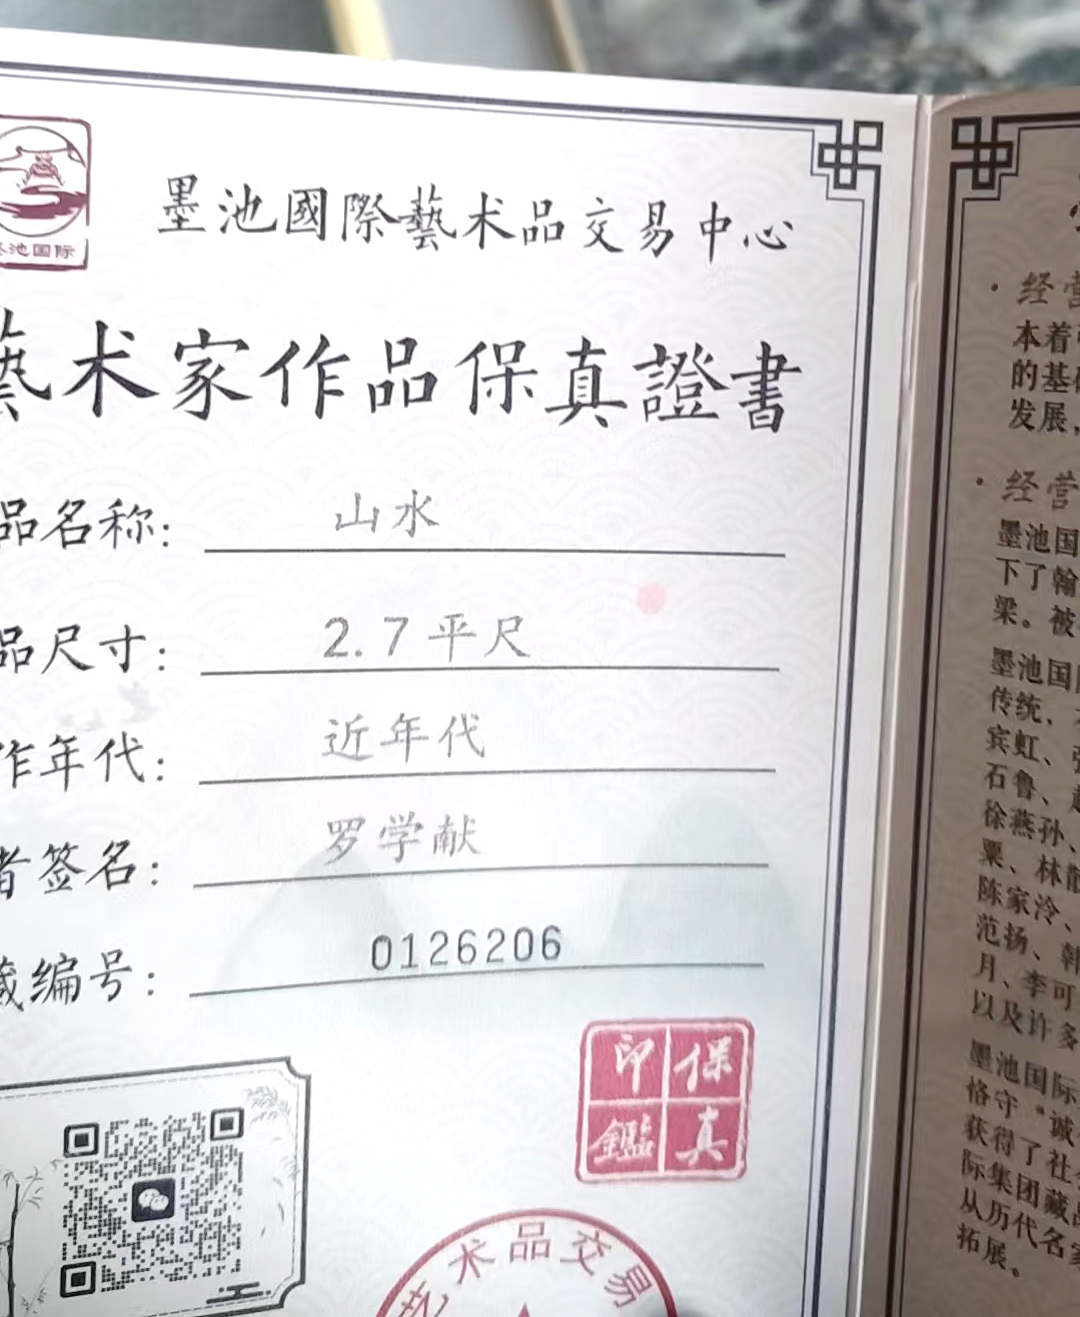 池国际
墨池國際藝术品交易中心
藝术家作品保真證書
品名称: 山水
品尺寸: 2.7平尺
作年代: 近年代
者签名: 罗学献
藏编号: 0126206
印保
鑑真
艺术品交易
·经营
本着
的基
发展,
·经营
墨池国
下了翰
梁。被
墨池国
传统、
宾虹、张
石鲁、
徐燕孙、
粟、林散
陈家泠、
范扬、韩
月、李可
以及许多
墨池国际
恪守“诚
获得了社
际集团藏品
从历代名家
拓展。